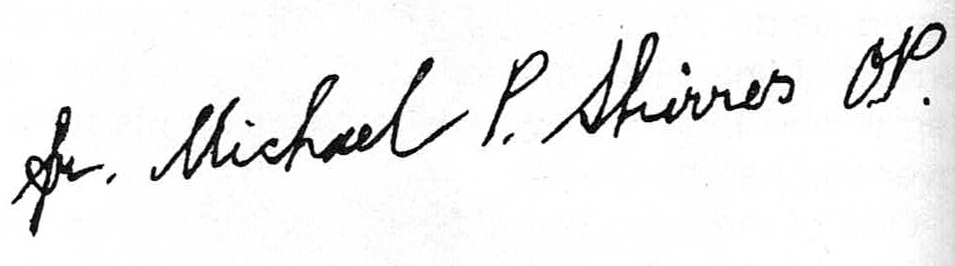 Fr. Michael P. Shirres OP.